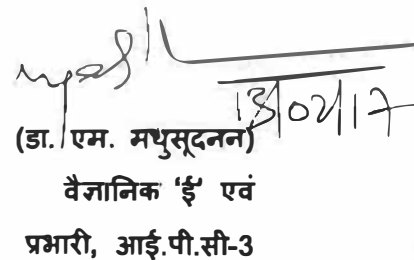 13/02/17
(डा. एम. मधुसूदनन)
वैज्ञानिक 'ई' एवं
प्रभारी, आई.पी.सी-3